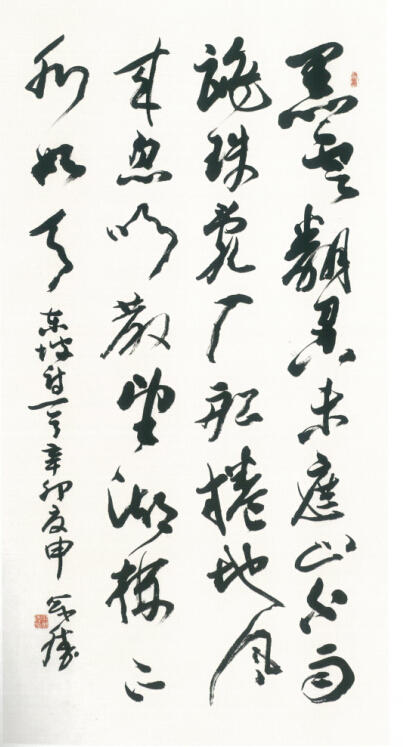 黑雲翻墨未遮山白雨
跳珠亂入船捲地風
來忽吹散望湖樓下
水如天 东坡诗一首辛卯夏申